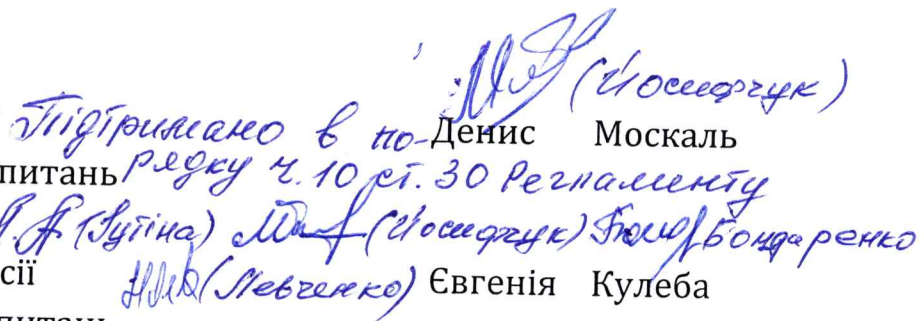 (Йосифчук)
Підтримано в по- Денис Москаль
питань рядку ч. 10 ст. 30 Регламенту
(Зутіна) (Йосифчук) Бондаренко
сії (Левченко) Євгенія Кулеба
питань